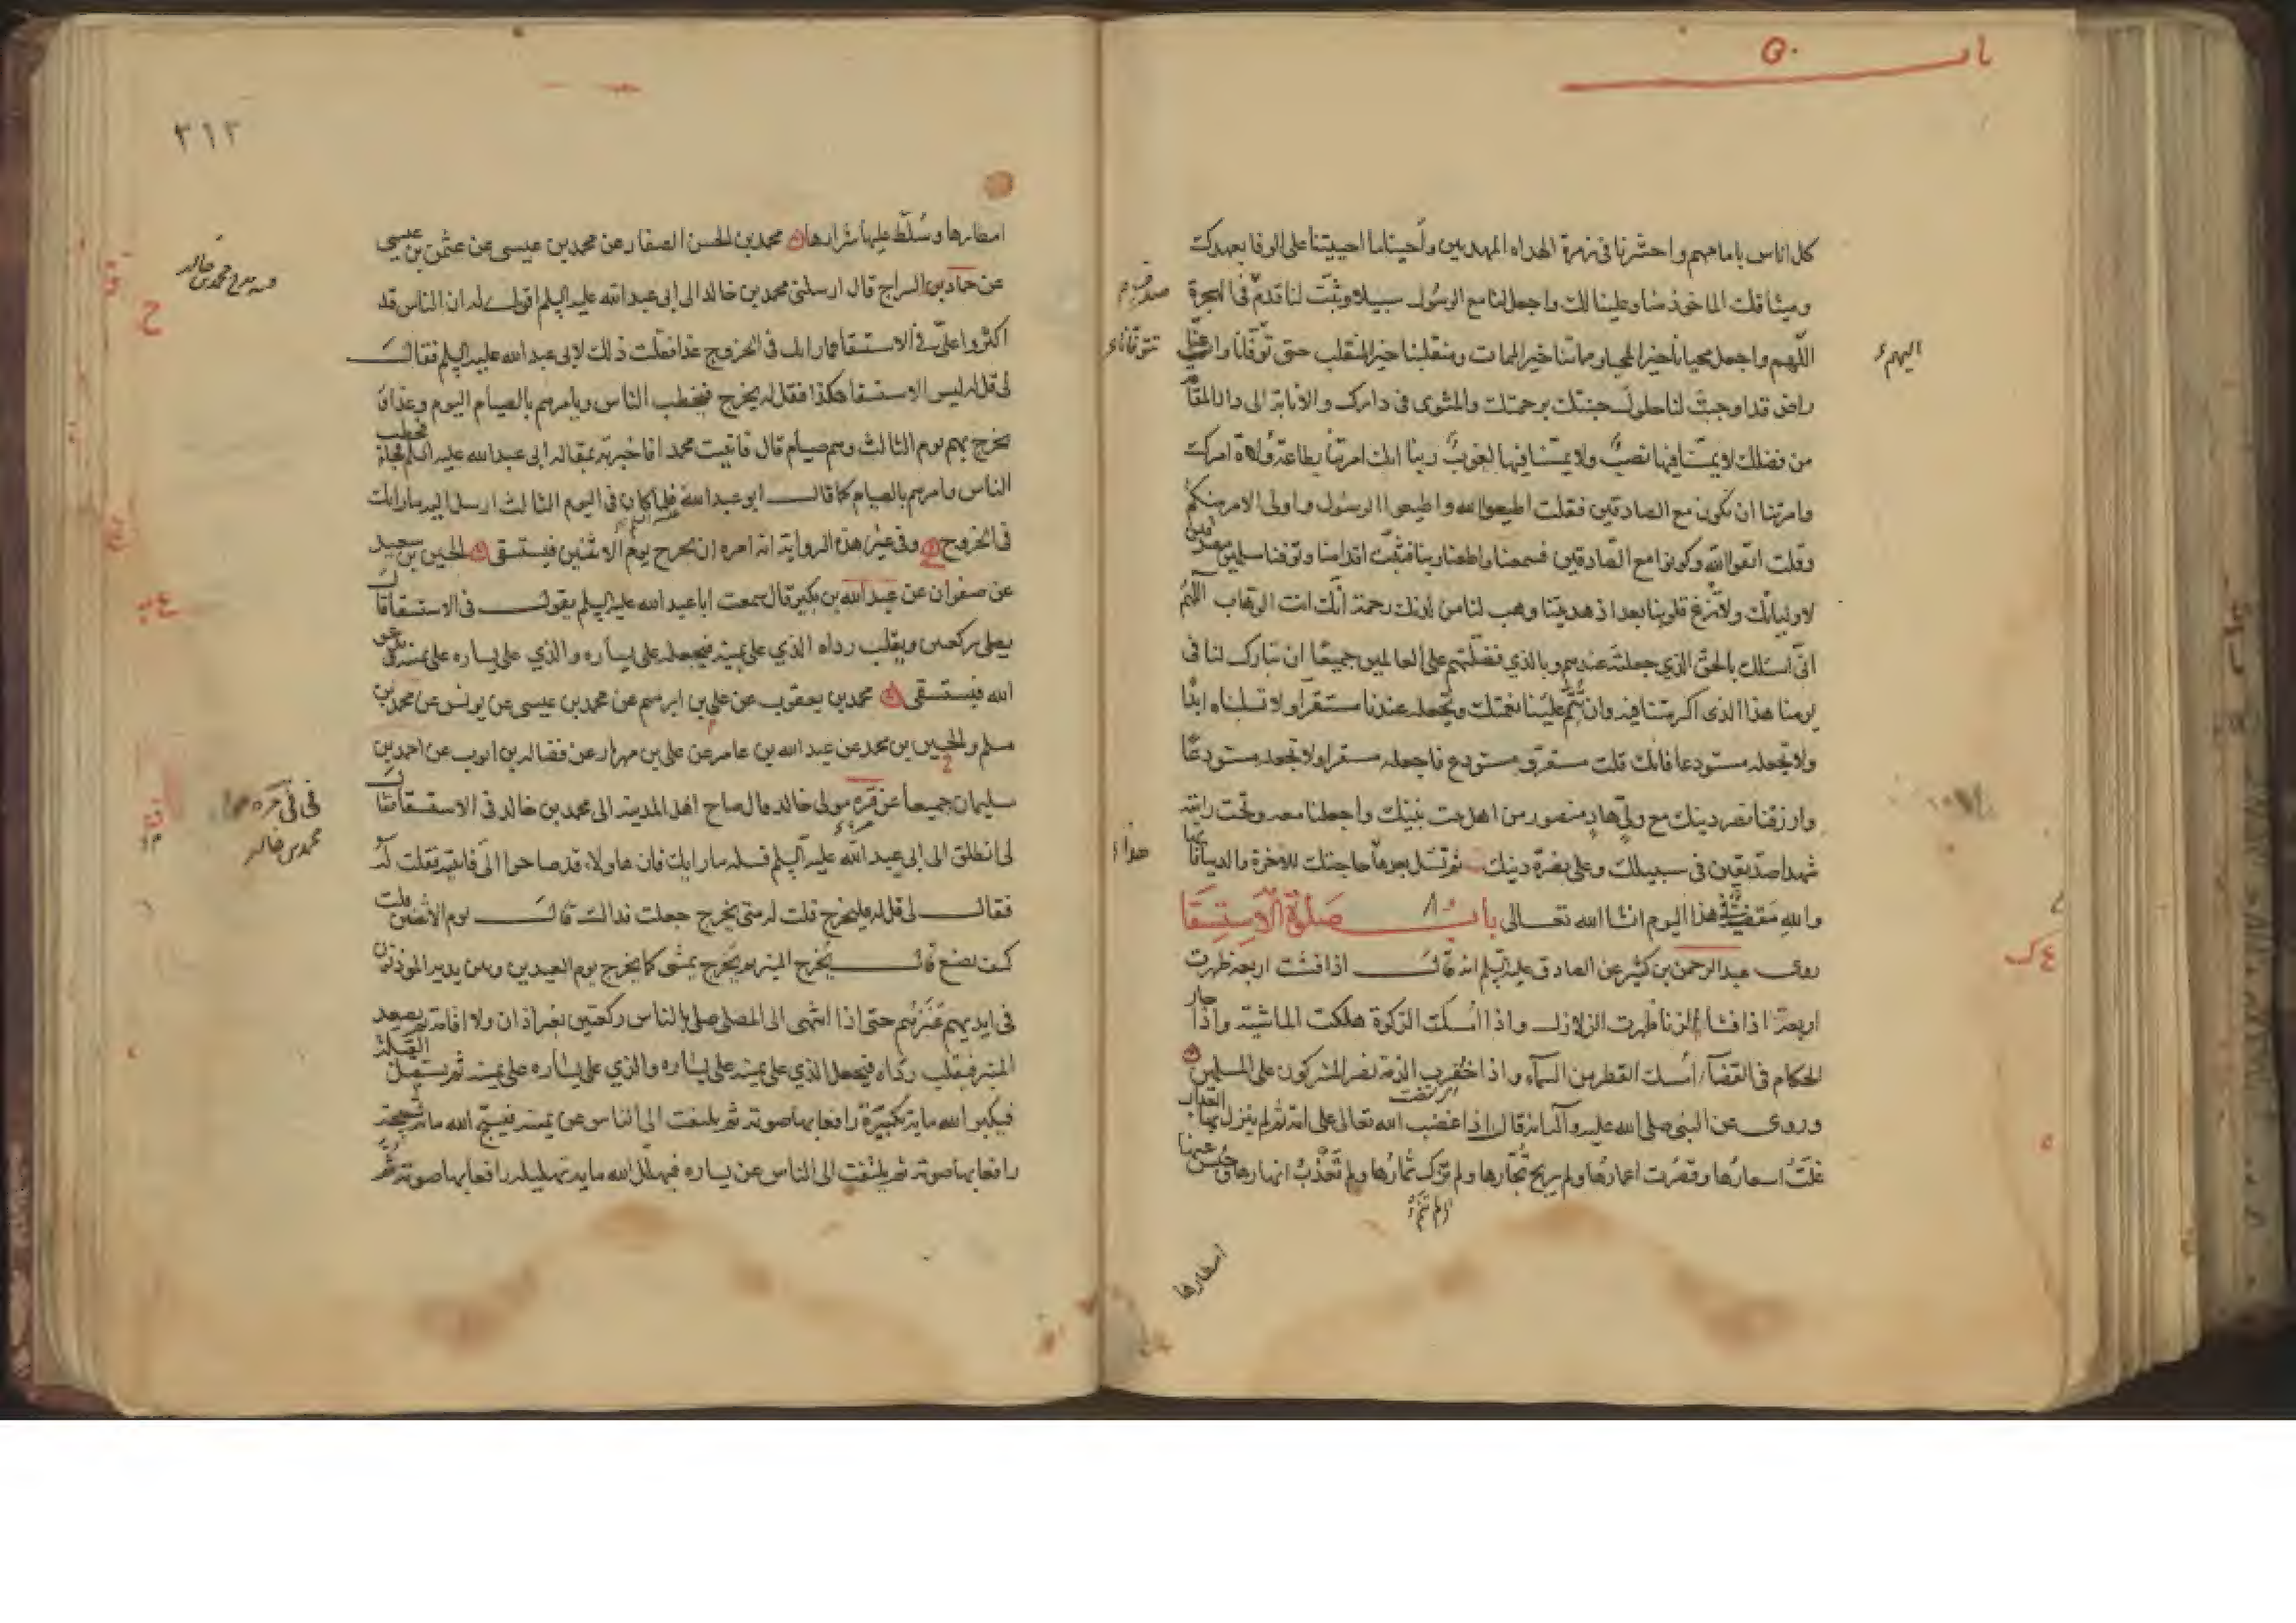 كل اناس بامامهم واحشرنا فى زمرة الهداه المهديين وأحينا ما احييتنا على الوفا بعهدك
وميثاقك الماخوذ منا وعلينا لك واجعل لنا مع الرسول سبيلا وثبت لنا قدم فى الهجرة
اللهم واجعل محيانا خير المحيا ومماتنا خير الممات ومنقلبنا خير المنقلب حتى توفانا وانت عنا
راض قد اوجبت لنا حلول جنتك برحمتك والمثوى فى دارك والانابة الى دار المقامة
من فضلك لا يمسنا فيها نصب ولا يمسنا فيها لغوب ربنا انك امرتنا بطاعة ولاة امرك
وامرتنا ان نكون مع الصادقين فقلت اطيعوا الله واطيعوا الرسول واولى الامر منكم
وقلت اتقوا الله وكونوا مع الصادقين فسمعنا واطعنا ربنا فثبت اقدامنا وتوفنا مسلمين مصدقين
لاوليائك ولا تزغ قلوبنا بعد اذ هديتنا وهب لنا من لدنك رحمة انك انت الوهاب اللهم
انى اسئلك بالحق الذي جعلته عندهم وبالذي فضلتهم على العالمين جميعا ان تبارك لنا فى
يومنا هذا الذى اكرمتنا فيه وان تتم علينا نعمتك وتجعله عندنا مستقرا ولا تسلبناه ابدا
ولا تجعله مستودعا فانك قلت مستقر ومستودع فاجعله مستقرا ولا تجعله مستودعا
وارزقنا نصر دينك مع ولي هاد منصور من اهل بيت نبيك واجعلنا معه وتحت رايته
شهدا صديقين فى سبيلك وعلى نصرة دينك ثم تسئل بعدها حاجتك للاخرة والدنيا فانها
والله مقضية فى هذا اليوم انشا الله تعالى باب صلوة الاستسقا
روى عبد الرحمن بن كثير عن الصادق عليه السلم انه قال اذا فشت اربعة ظهرت
اربعة اذا فشا الزنا ظهرت الزلازل واذا امسكت الزكوة هلكت الماشية واذا جار
الحكام فى القضآء امسك القطر من السمآء واذا خفرت الذمة نصر المشركون على المسلمين
وروى عن النبى صلى الله عليه وآله انه قال اذا غضب الله تعالى على امة ثم لم ينزل بها العذاب
غلت اسعارها وقصرت اعمارها ولم يربح تجارها ولم تزك ثمارها ولم تغذب انهارها وحبس عنها
امطارها
اليهم
٣١٣
امطارها وسلط عليها شرارها محمد بن الحسن الصفار عن محمد بن عيسى عن عثمن بن عيسى
عن حماد بن السراج قال ارسلنى محمد بن خالد الى ابى عبد الله عليه السلم اقول له ان الناس قد
اكثروا على فى الاستسقا فما رايك فى الخروج غدا فقلت ذلك لابى عبد الله عليه السلم فقال
لى قل له ليس الاستسقا هكذا فقل له يخرج فيخطب الناس ويامرهم بالصيام اليوم وغدا
يخرج بهم يوم الثالث وهم صيام قال فاتيت محمدا فاخبرته بمقالة ابى عبد الله عليه السلم فخطب
الناس وامرهم بالصيام كما قال ابو عبد الله فلما كان فى اليوم الثالث ارسل اليه ما رايك
فى الخروج وفى غير هذه الرواية انه امره ان يخرج يوم الاثنين فيستسقى الحسين بن سعيد
عن صفوان عن عبد الله بن بكير قال سمعت ابا عبد الله عليه السلم يقول فى الاستسقا قال
يصلى ركعتين ويقلب رداه الذي على يمينه فيجعله على يساره والذي على يساره على يمينه ويدعو
الله فيستسقى محمد بن يعقوب عن على بن ابرهيم عن محمد بن عيسى عن يونس عن محمد بن
مسلم والحسين بن محمد عن عبد الله بن عامر عن على بن مهزيار عن فضالة بن ايوب عن احمد بن
سليمان جميعا عن مرة مولى خالد قال صاح اهل المدينة الى محمد بن خالد فى الاستسقا فقال
لى انطلق الى ابى عبد الله عليه السلم فسله ما رايك فان هاولاء قد صاحوا الى فاتيته فقلت له
فقال لى قل له فليخرج قلت له متى يخرج جعلت فداك قال يوم الاثنين قلت
كيف يصنع قال يخرج المنبر ثم يخرج يمشى كما يخرج يوم العيدين وبين يديه الموذنون
فى ايديهم عنزهم حتى اذا انتهى الى المصلى صلى بالناس ركعتين بغير اذان ولا اقامة ثم يصعد
المنبر فيقلب رداه فيجعل الذي على يمينه على يساره والذي على يساره على يمينه ثم يستقبل القبلة
فيكبر الله ماية تكبيرة رافعا بها صوته ثم يلتفت الى الناس عن يمينه فيسبح الله ماية تسبيحة
رافعا بها صوته ثم يلتفت الى الناس عن يساره فيهلل الله ماية تهليلة رافعا بها صوته ثم
محمد بن خالد